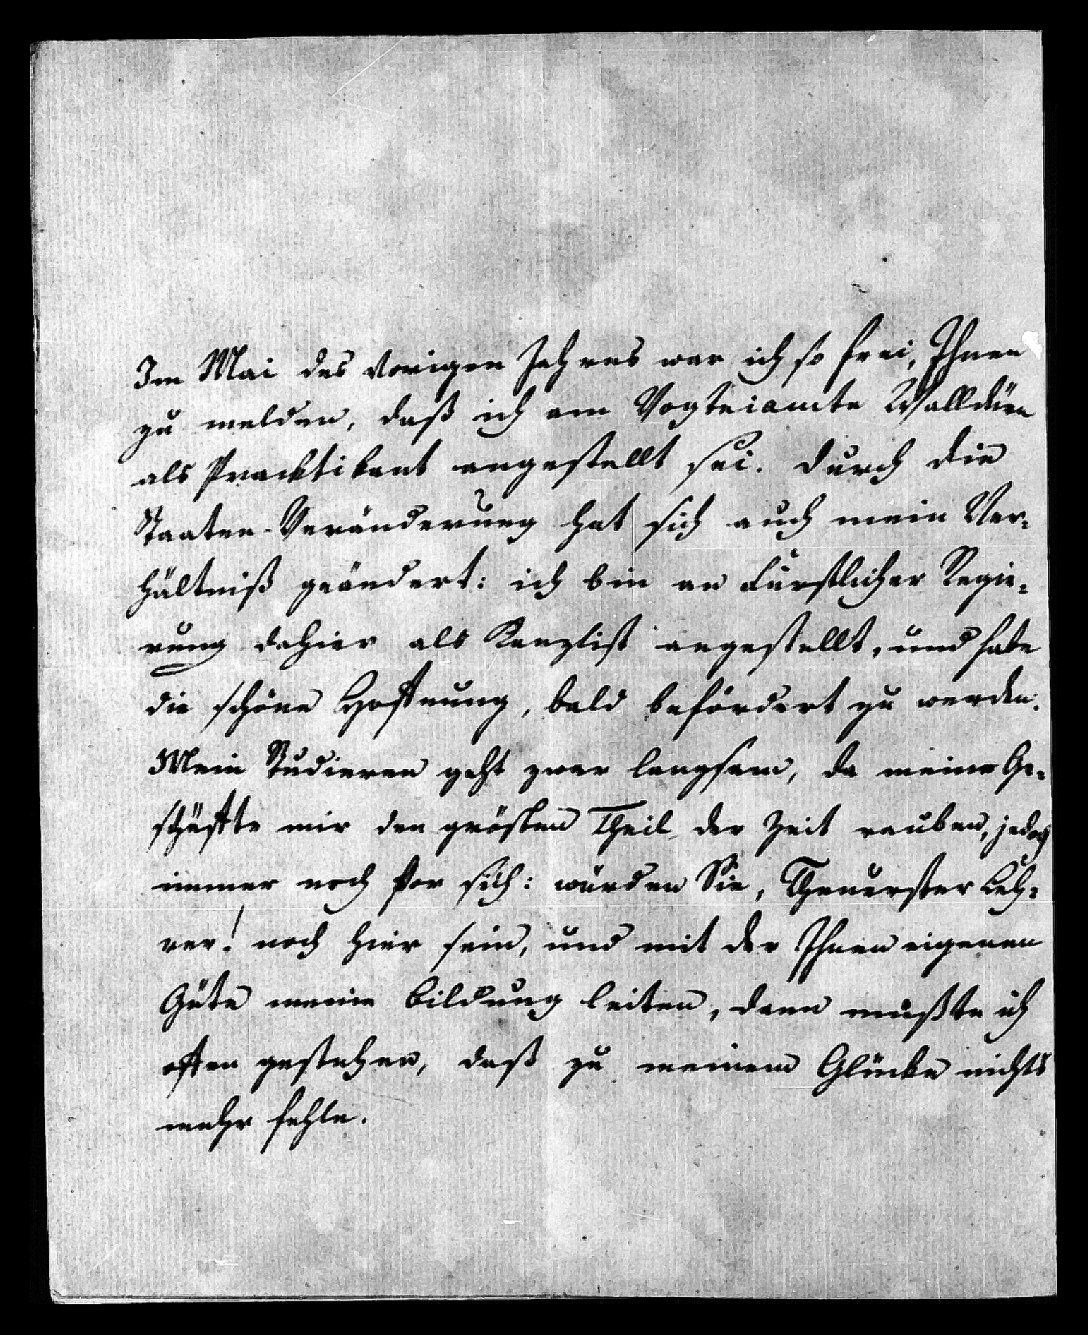 Im Mai des vorigen Jahres war ich so frei, Ihnen
zu melden, daß ich am Vogteiamte Walldürn
als Practikant angestellt sei. Durch die
Staaten-Veränderung hat sich auch mein Ver-
hältniß geändert: ich bin an Fürstlicher Regie-
rung dahier als Kanzlist angestellt, und habe
die schöne Hoffnung, bald befördert zu werden.
Mein Studieren geht zwar langsam, da meine Ge-
schäfte mir den grösten Theil der Zeit rauben, jedoch
immer noch vor sich: würden Sie, Theuerster Leh-
rer! noch hier sein, und mit der Ihnen eigenen
Güte meine Bildung leiten, dann müßte ich
offen gestehen, daß zu meinem Glücke nichts
mehr fehle.